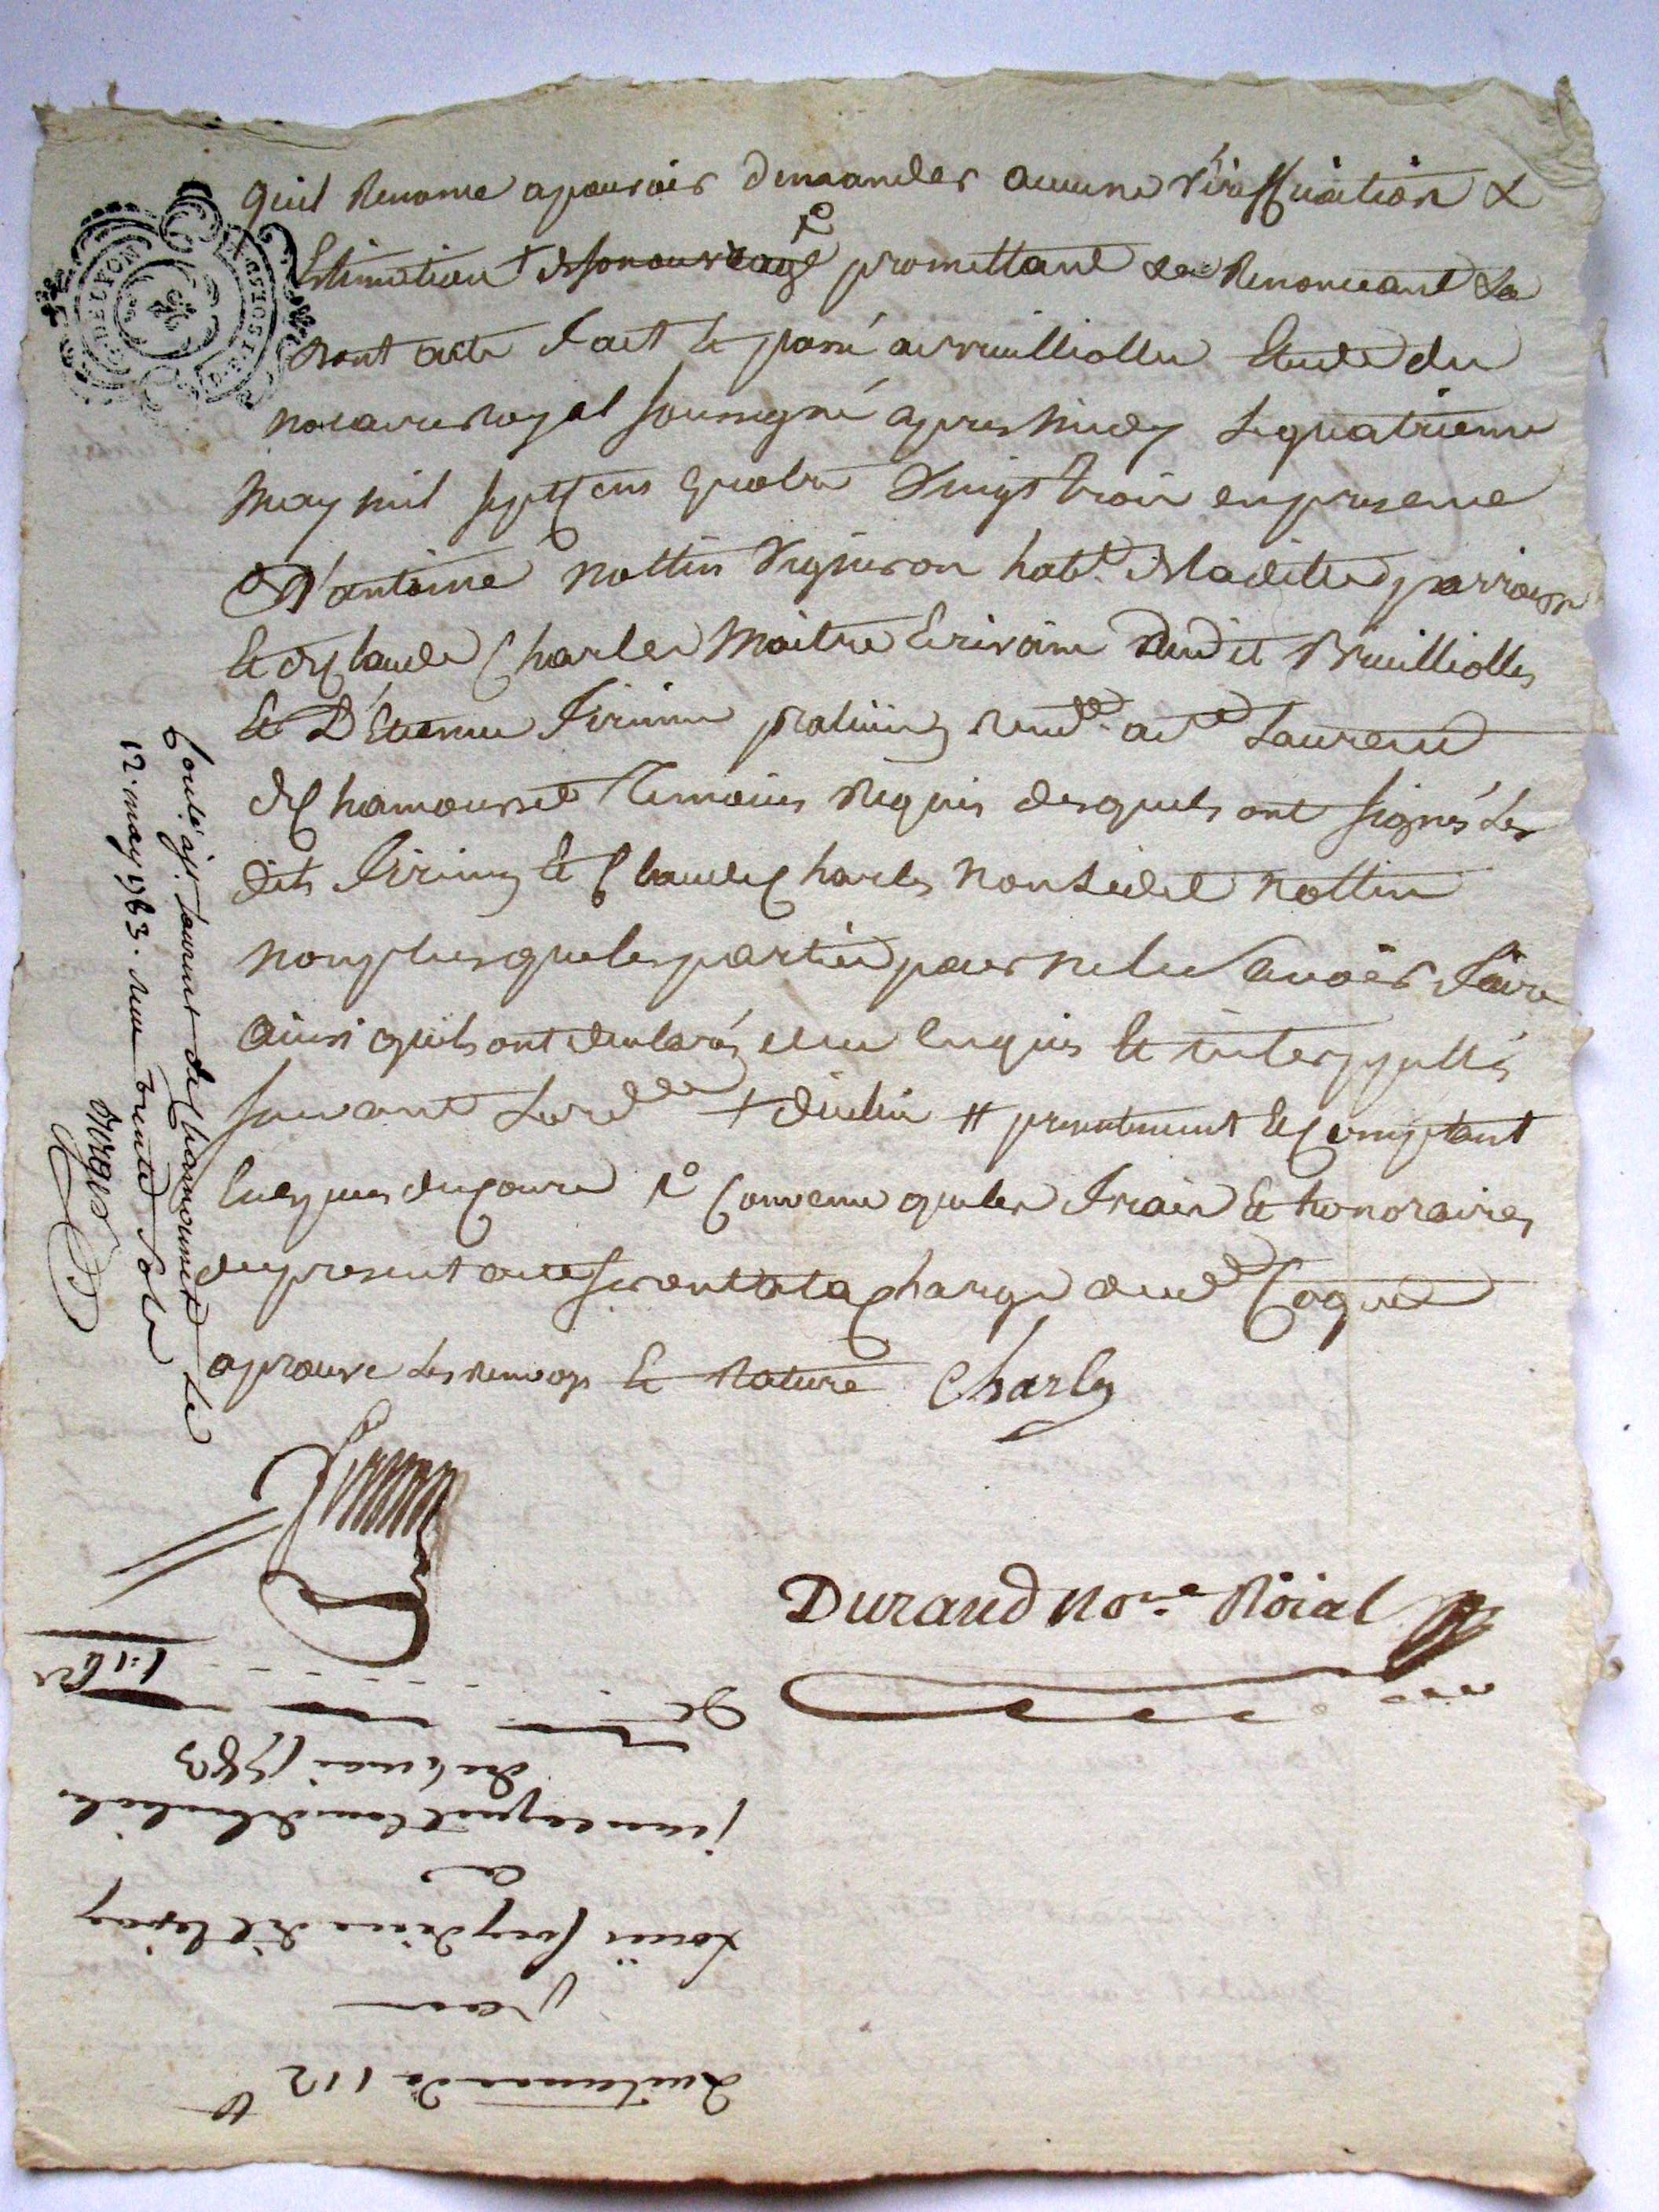 quil Renonce apouvoir demander aucune vériffication &
Estimation + desonouvrage R° promettant & Renonceant &a
dont acte fait et passé abruilliolles Etude du
notaire Royal soussigné apres midy Le quatrieme
May mil septcens quatre vingt trois enpresence
D'antoine nottin vigneron hab.t deladitte parroisse
Et declaude Charles Maitre Ecrivain dudit Bruilliolles
Et D'Etienne praticien rend.t a St Laurent
dechamousset Temoins Requis desquels ont signés Les
dits et Claude charles non Ledit nottin
nonplusqueles parties pour ne le savoir faire
ainsi quils ont declarés de ce Enquis et interppellés
suivant Lord.ce + dicelui # presentement Et Comptant
Enespeces decours R° Convenu queles frais Et honoraires
dupresent acte seront ala charge dud.t Coquet
aprouvé Les renvoys Et Rature Charles
Durand No.re Roïal
Conlé a St Laurent de Chamousset Le
12. may 1783. Recu trente sols
GDELYON
Quittance de 112 tt
par
Louis dit lepay
a
jean coquet
du 4 mai 1783